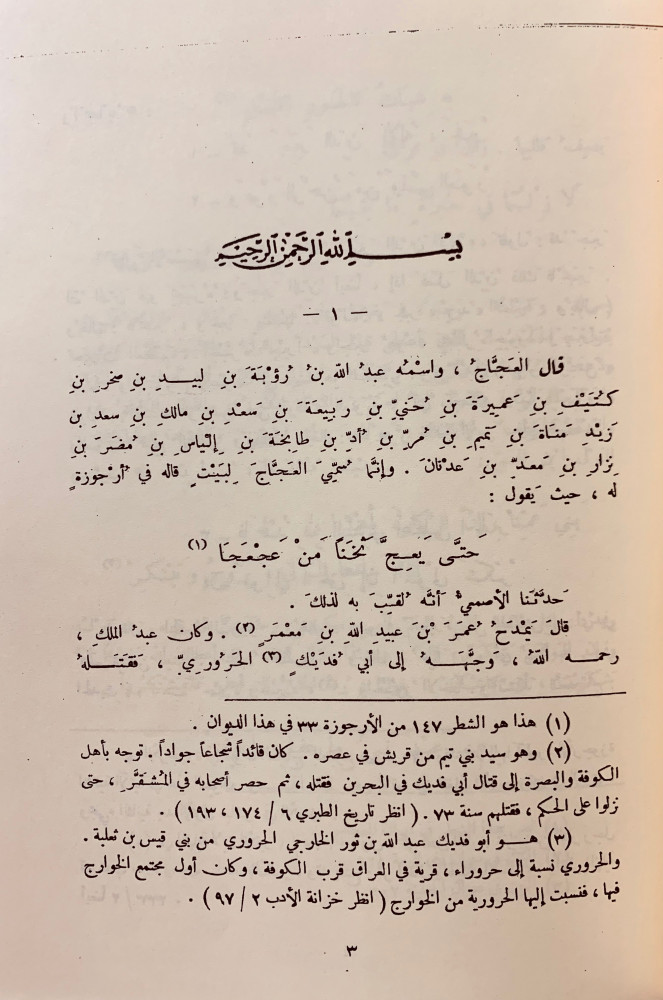 بِسْمِ اللهِ الرَّحْمٰنِ الرَّحِيْمِ
— ١ —
قال العَجَّاجُ ، واسْمُه عبدُ اللّه بنُ رُؤْبَةَ بنِ لبيدِ بنِ صخرِ بنِ
كُنَيْفِ بنِ عَمِيرَةَ بنِ حُنَيِّ بنِ رَبيعَةَ بنِ سَعْدِ بنِ مالكِ بنِ سعدِ بنِ
زَيْدِ مَنَاةَ بنِ تميمِ بنِ مُرِّ بنِ أُدِّ بنِ طابِخَةَ بنِ إلْياسِ بنِ مُضَرَ بنِ
نِزارِ بنِ مَعَدِّ بنِ عَدنانَ . وإنَّما سُمِّيَ العَجَّاجَ لِبَيْتٍ قاله في أُرْجوزةٍ
له ، حيث يَقول :
حَتَّى يَعِجَّ ثَخَناً مَنْ عَجْعَجَا (١)
حَدَّثَنا الأصمعيُّ أَنَّه لُقِّبَ به لذلكَ .
قالَ يَمْدَحُ عُمَرَ بْنَ عبيدِ اللّهِ بنِ مَعْمَرٍ (٢) . وكان عبدُ الملكِ ،
رحمه اللّهُ ، وَجَّهَهُ إلى أبي فُدَيْكٍ (٣) الحَرُوريِّ ، فَقَتَلَهُ
(١) هذا هو الشطر ١٤٧ من الأرجوزة ٣٣ في هذا الديوان .
(٢) وهو سيد بني تيم من قريش في عصره . كان قائداً شجاعاً جواداً . توجه بأهل
الكوفة والبصرة إلى قتال أبي فديك في البحرين فقتله ، ثم حصر أصحابه في المُشَقَّر ، حتى
نزلوا على الحكم ، فقتلهم سنة ٧٣ . ( انظر تاريخ الطبري ٦ / ١٧٤ ، ١٩٣ ) .
(٣) هو أبو فديك عبد الله بن ثور الخارجي الحروري من بني قيس بن ثعلبة .
والحروري نسبة إلى حروراء ، قرية في العراق قرب الكوفة ، وكان أول مجتمع الخوارج
فيها ، فنسبت إليها الحرورية من الخوارج ( انظر خزانة الأدب ٢ / ٩٧ ) .
٣